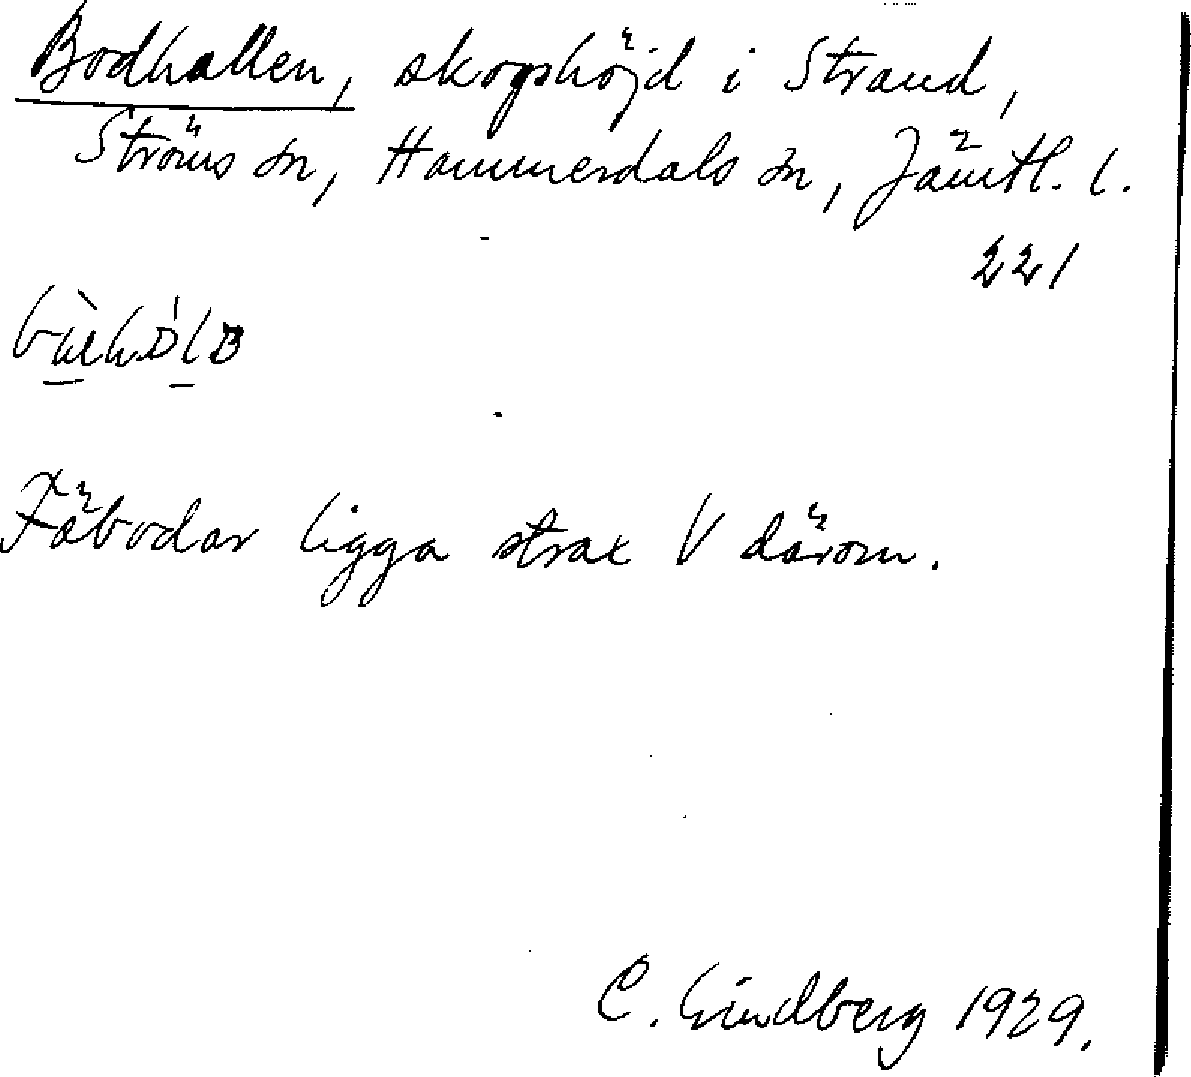 Bodhallen, skogshöjd i Strand,
Ströms sn, Hammerdals sn, Jämtl. l.
221
Fäbodar ligga strax V därom.
C. Lindberg 1929.